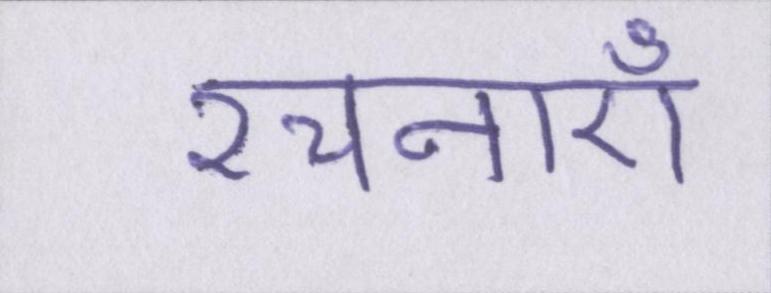 रचनाएँ